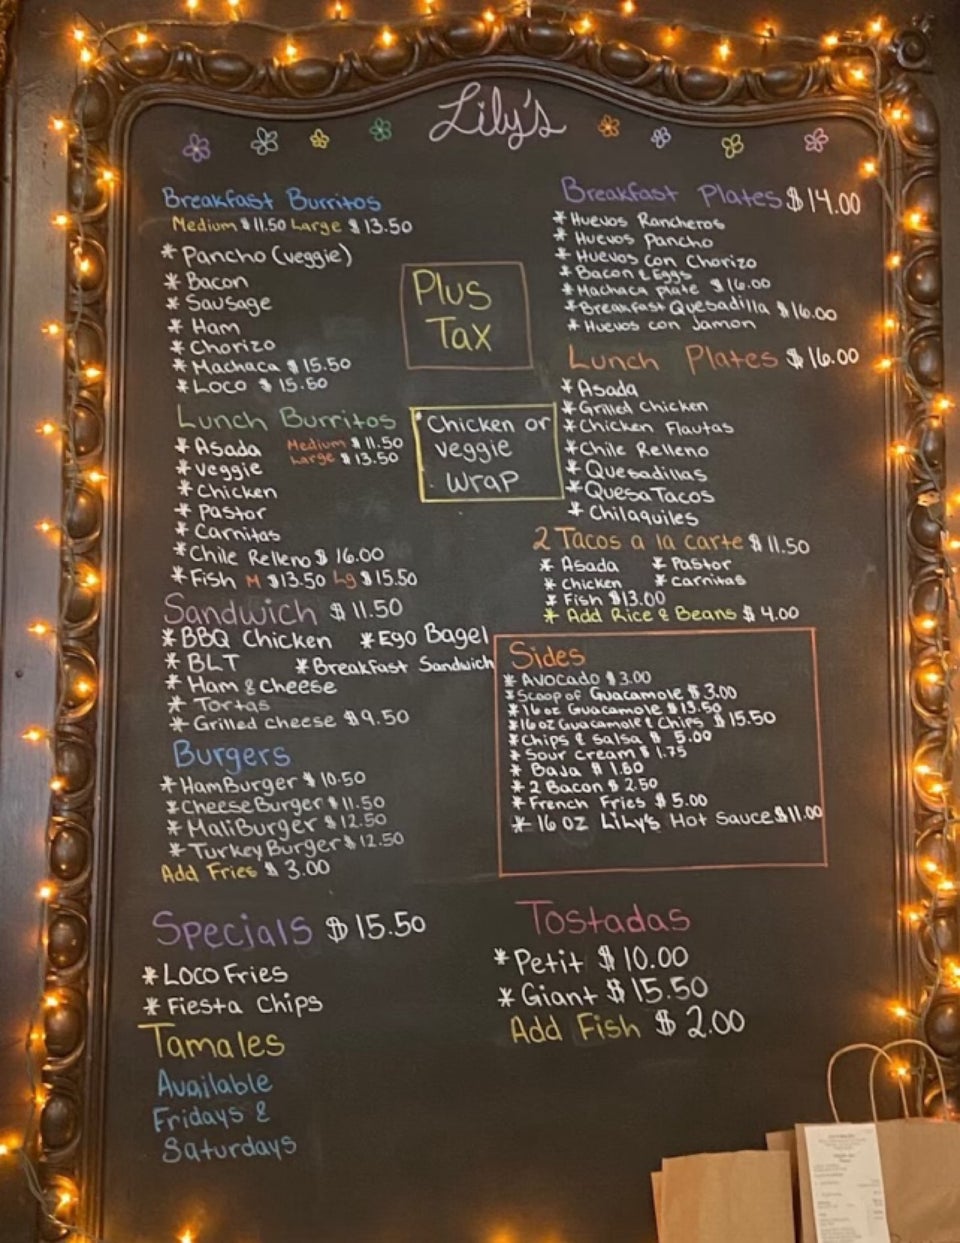 Lily's
Breakfast Burritos
Medium $11.50 Large $13.50
* Pancho (veggie)
* Bacon
* Sausage
* Ham
* Chorizo
* Machaca $15.50
* Loco $15.50
Lunch Burritos
Medium $11.50
Large $13.50
* Asada
* veggie
* Chicken
* Pastor
* Carnitas
* Chile Relleno $16.00
* Fish M $13.50 Lg $15.50
Sandwich $11.50
* BBQ Chicken * Egg Bagel
* BLT * Breakfast Sandwich
* Ham & Cheese
* Tortas
* Grilled cheese $9.50
Burgers
* HamBurger $10.50
* CheeseBurger $11.50
* MaliBurger $12.50
* Turkey Burger $12.50
Add Fries $3.00
Specials $15.50
* Loco Fries
* Fiesta Chips
Tamales
Available
Fridays &
Saturdays
Plus
Tax
* Chicken or
veggie
Wrap
Breakfast Plates $14.00
* Huevos Rancheros
* Huevos Pancho
* Huevos Con Chorizo
* Bacon & Eggs
* Machaca Plate $16.00
* Breakfast Quesadilla $16.00
* Huevos con Jamon
Lunch Plates $16.00
* Asada
* Grilled Chicken
* Chicken Flautas
* Chile Relleno
* Quesadillas
* Quesa Tacos
* Chilaquiles
2 Tacos a la carte $11.50
* Asada * Pastor
* Chicken * carnitas
* Fish $13.00
* Add Rice & Beans $4.00
Sides
* Avocado $3.00
* Scoop of Guacamole $3.00
* 16 oz Guacamole $13.50
* 16 oz Guacamole & Chips $15.50
* Chips & Salsa $5.00
* Sour Cream $1.75
* Baja $1.80
* 2 Bacon $2.50
* French Fries $5.00
* 16 OZ Lily's Hot Sauce $11.00
Tostadas
* Petit $10.00
* Giant $15.50
Add Fish $2.00